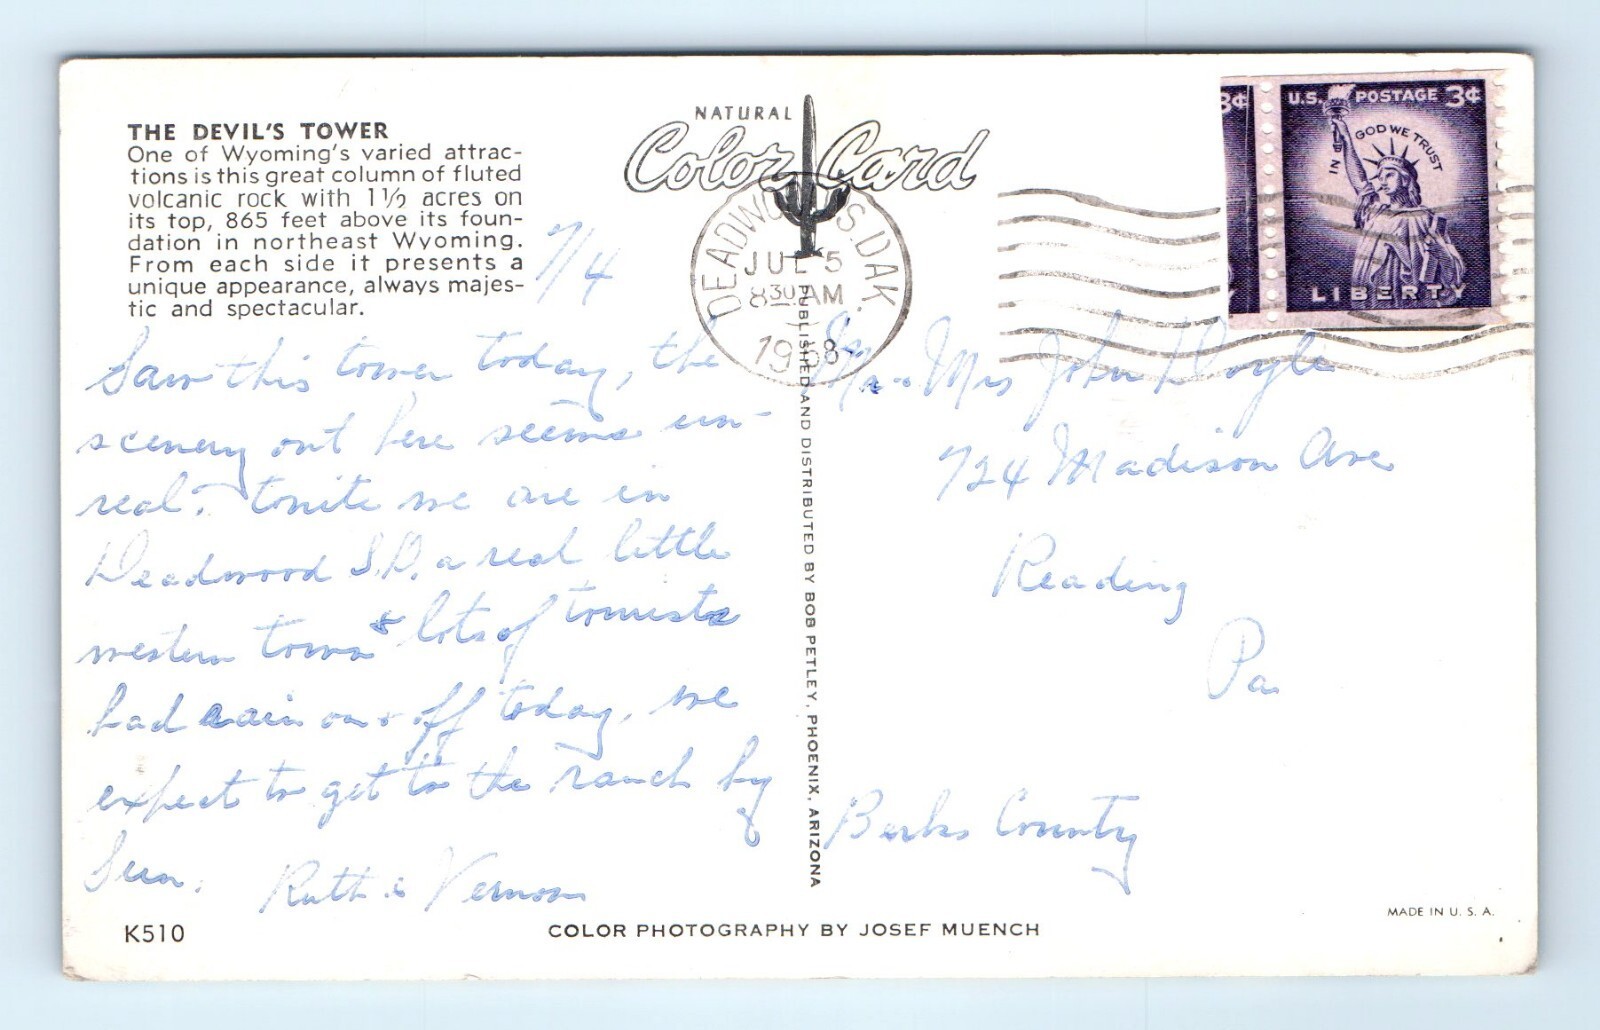 THE DEVIL'S TOWER
One of Wyoming's varied attrac-
tions is this great column of fluted
volcanic rock with 1½ acres on
its top, 865 feet above its foun-
dation in northeast Wyoming.
From each side it presents a
unique appearance, always majes-
tic and spectacular.
7/4
Saw this tower today, the
scenery out here seems un-
real. tonite we are in
Deadwood S.D. a real little
western town & lots of tourists
had rain on & off today, we
expect to get to the ranch by
Sun.
Ruth & Vernon
K510
NATURAL
Color Card
DEADWOOD S. DAK.
JUL 5
8 30 AM
PUBLISHED AND DISTRIBUTED BY BOB PETLEY, PHOENIX, ARIZONA
3¢
U.S. POSTAGE 3¢
IN GOD WE TRUST
LIBERTY
Mr & Mrs John Hoyle
724 Madison Ave
Reading
Pa.
Berks County
COLOR PHOTOGRAPHY BY JOSEF MUENCH
MADE IN U. S. A.